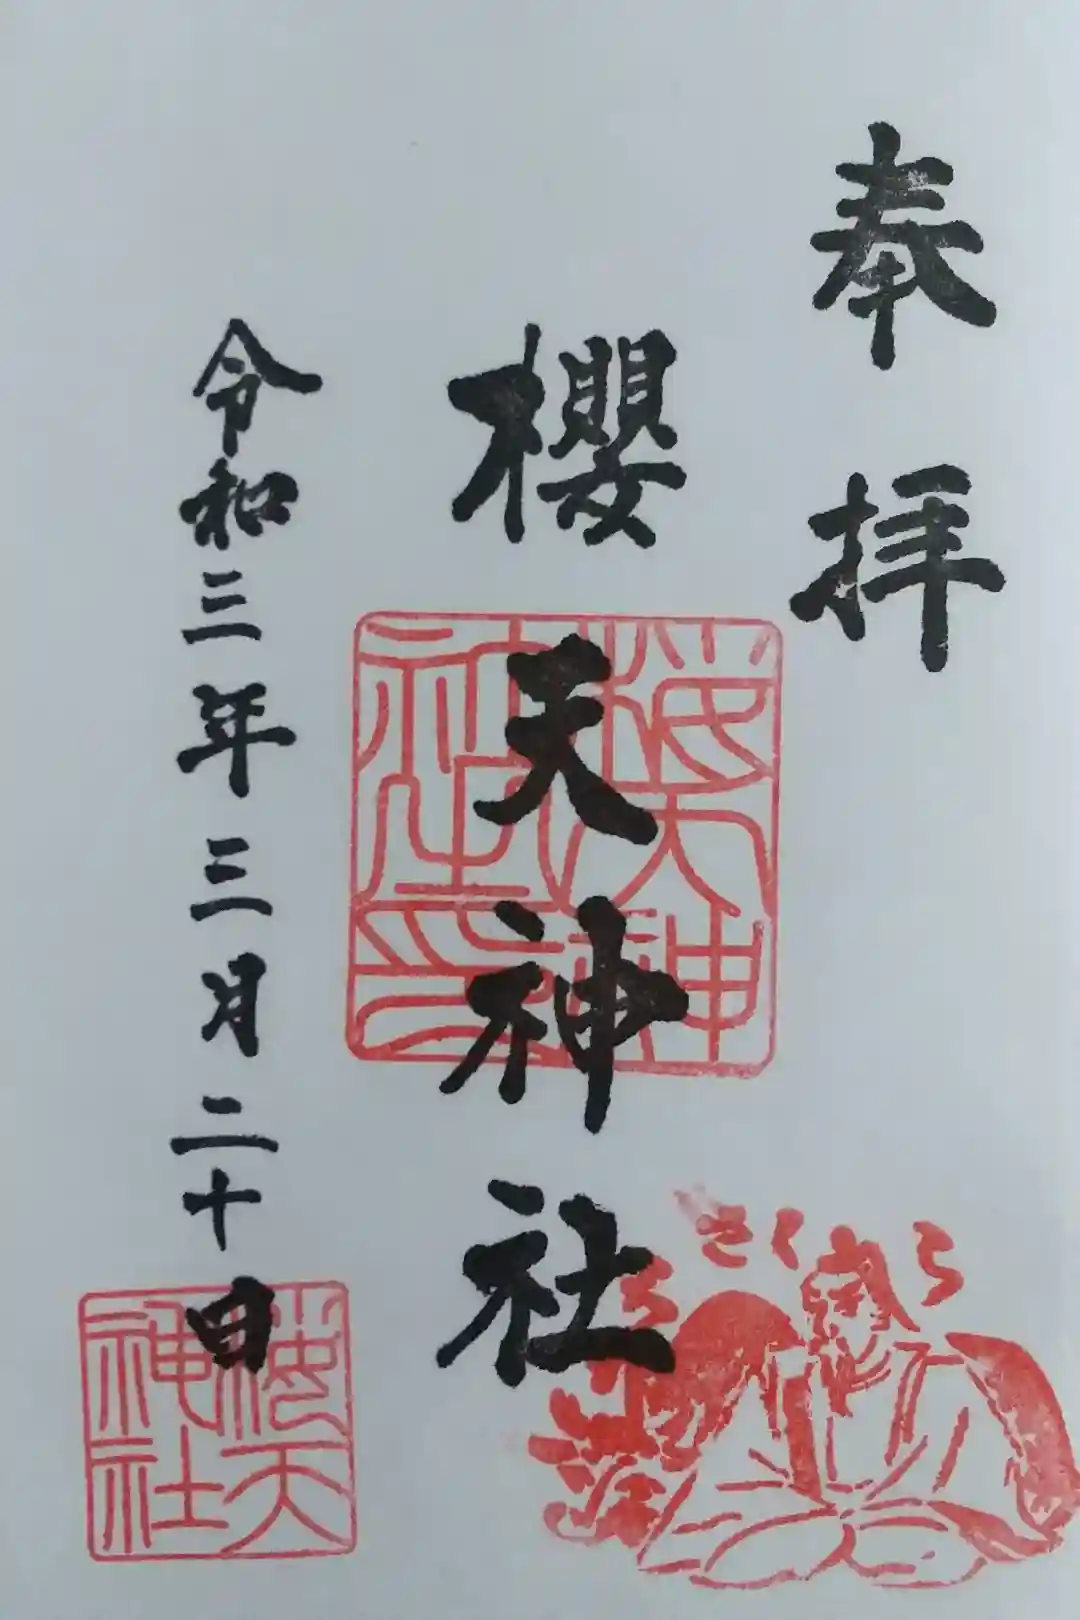 奉拝
櫻天神社
令和三年三月二十日
桜天神社印
さくら
桜天神社